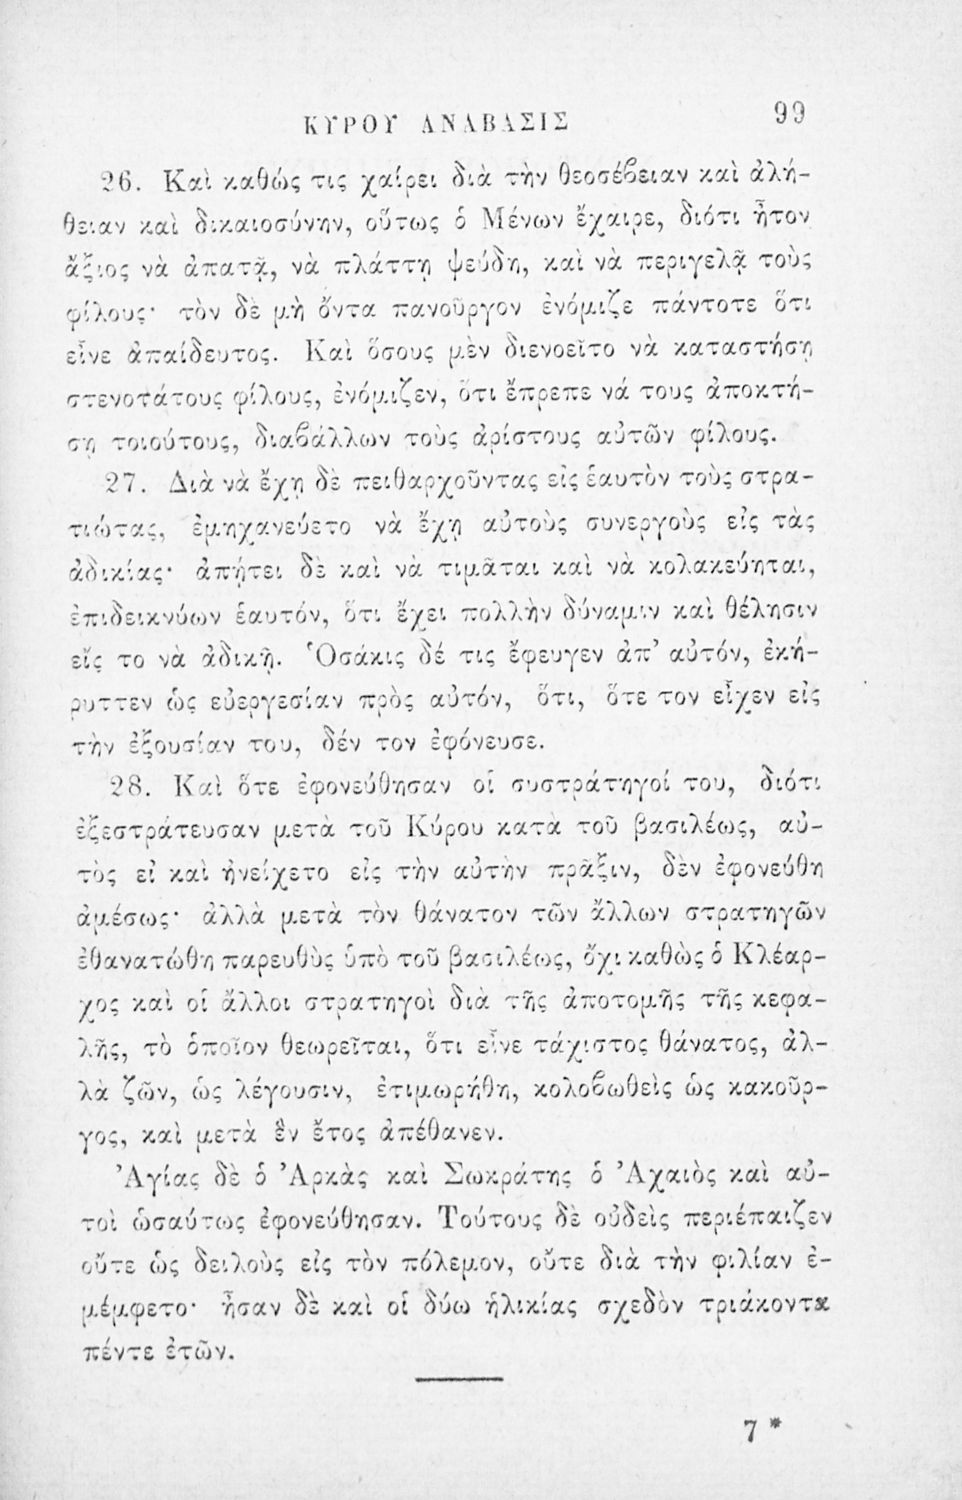 ΚΥΡΟΥ ΑΝΑΒΑΣΙΣ 99
26. Καὶ καθώς τις χαίρει διὰ τὴν θεοσέβειαν καὶ ἀλή-
θειαν καὶ δικαιοσύνην, οὕτως ὁ Μένων ἔχαιρε, διότι ἦτον
ἄξιος νὰ ἀπατᾷ, νὰ πλάττῃ ψεύδη, καὶ νὰ περιγελᾷ τοὺς
φίλους· τὸν δὲ μὴ ὄντα πανοῦργον ἐνόμιζε πάντοτε ὅτι
εἶνε ἀπαίδευτος. Καὶ ὅσους μὲν διενοεῖτο νὰ καταστήσῃ
στενοτάτους φίλους, ἐνόμιζεν, ὅτι ἔπρεπε νά τους ἀποκτή-
σῃ τοιούτους, διαβάλλων τοὺς ἀρίστους αὐτῶν φίλους.
27. Διὰ νὰ ἔχῃ δὲ πειθαρχοῦντας εἰς ἑαυτὸν τοὺς στρα-
τιώτας, ἐμηχανεύετο νὰ ἔχῃ αὐτοὺς συνεργοὺς εἰς τὰς
ἀδικίας· ἀπῄτει δὲ καὶ νὰ τιμᾶται καὶ νὰ κολακεύηται,
ἐπιδεικνύων ἑαυτόν, ὅτι ἔχει πολλὴν δύναμιν καὶ θέλησιν
εἴς το νὰ ἀδικῇ. Ὁσάκις δέ τις ἔφευγεν ἀπ’ αὐτόν, ἐκή-
ρυττεν ὡς εὐεργεσίαν πρὸς αὐτόν, ὅτι, ὅτε τον εἶχεν εἰς
τὴν ἐξουσίαν του, δέν τον ἐφόνευσε.
28. Καὶ ὅτε ἐφονεύθησαν οἱ συστράτηγοί του, διότι
ἐξεστράτευσαν μετὰ τοῦ Κύρου κατὰ τοῦ βασιλέως, αὐ-
τὸς εἰ καὶ ἠνείχετο εἰς τὴν αὐτὴν πρᾶξιν, δὲν ἐφονεύθη
ἀμέσως· ἀλλὰ μετὰ τὸν θάνατον τῶν ἄλλων στρατηγῶν
ἐθανατώθη παρευθὺς ὑπὸ τοῦ βασιλέως, ὄχι καθὼς ὁ Κλέαρ-
χος καὶ οἱ ἄλλοι στρατηγοὶ διὰ τῆς ἀποτομῆς τῆς κεφα-
λῆς, τὸ ὁποῖον θεωρεῖται, ὅτι εἶνε τάχιστος θάνατος, ἀλ-
λὰ ζῶν, ὡς λέγουσιν, ἐτιμωρήθη, κολοβωθεὶς ὡς κακοῦρ-
γος, καὶ μετὰ ἓν ἔτος ἀπέθανεν.
Ἀγίας δὲ ὁ Ἀρκὰς καὶ Σωκράτης ὁ Ἀχαιὸς καὶ αὐ-
τοὶ ὡσαύτως ἐφονεύθησαν. Τούτους δὲ οὐδεὶς περιέπαιζεν
οὔτε ὡς δειλοὺς εἰς τὸν πόλεμον, οὔτε διὰ τὴν φιλίαν ἐ-
μέμφετο· ἦσαν δὲ καὶ οἱ δύω ἡλικίας σχεδὸν τριάκοντα
πέντε ἐτῶν.
7 *